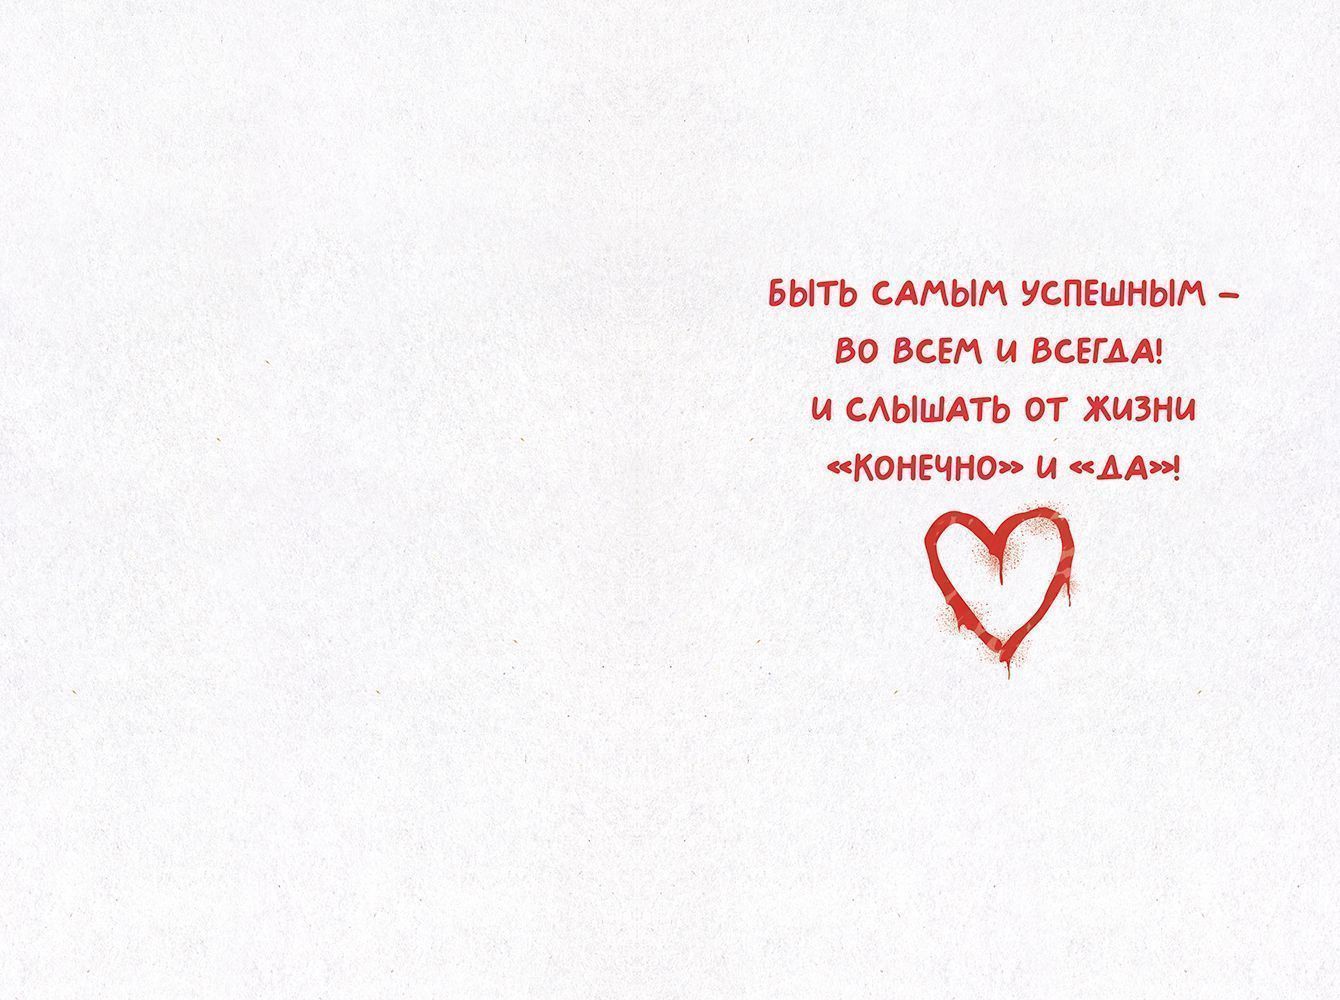 БЫТЬ САМЫМ УСПЕШНЫМ –
ВО ВСЕМ И ВСЕГДА!
И СЛЫШАТЬ ОТ ЖИЗНИ
«КОНЕЧНО» И «ДА»!